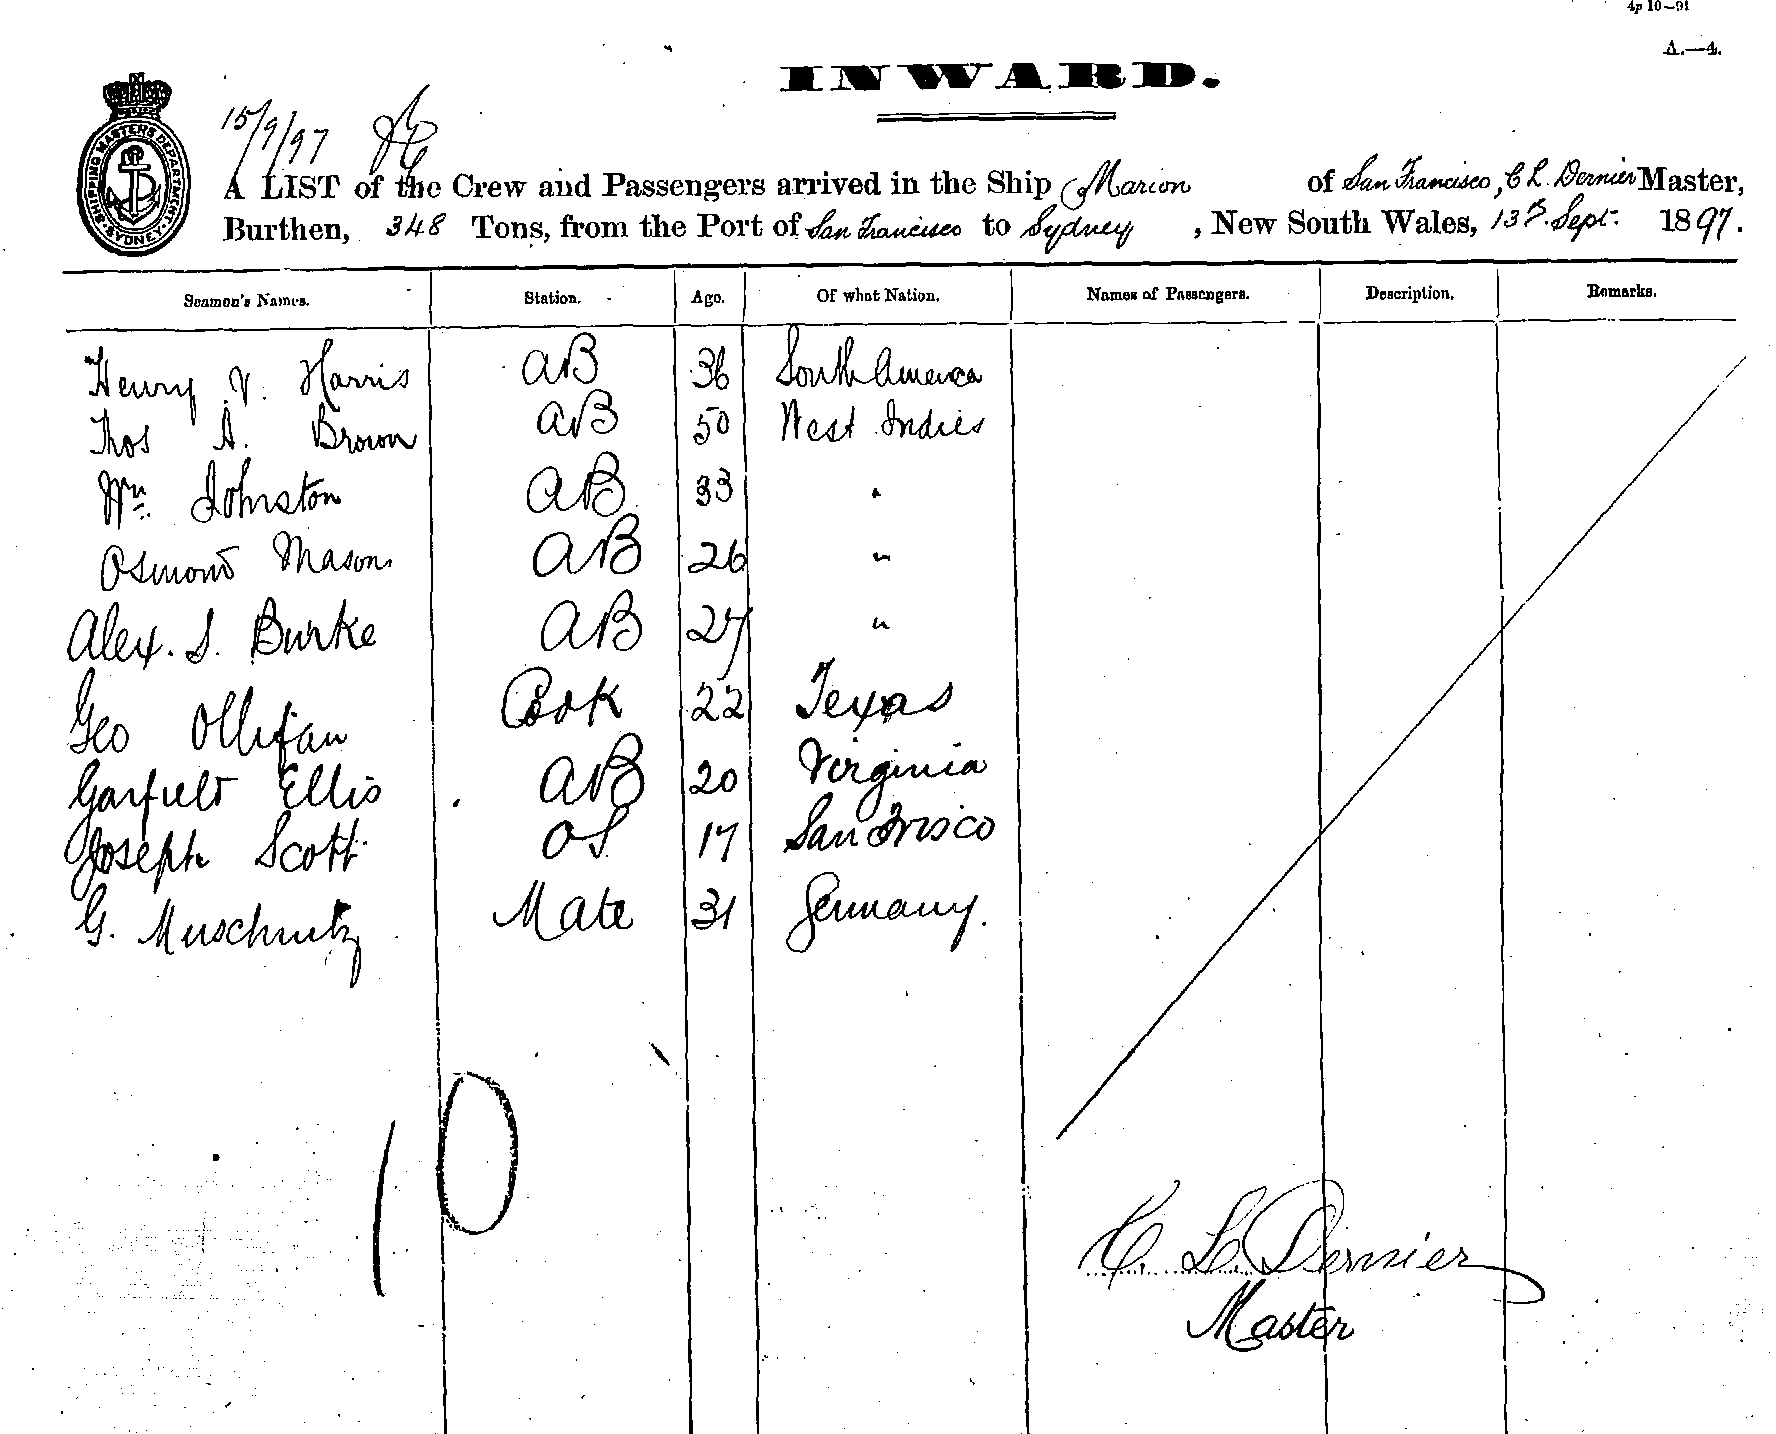 4p 10—91
A.—4.
INWARD.
SHIPPING MASTERS DEPARTMENT SYDNEY
15/9/97
A LIST of the Crew and Passengers arrived in the Ship Marion of San Francisco, C L. Dernier Master,
Burthen, 348 Tons, from the Port of San Francisco to Sydney, New South Wales, 13th Sept. 1897.
Seamen's Names. Station. Age. Of what Nation. Names of Passengers. Description. Remarks.
Henry V. Harris AB 36 South America
Thos A. Brown AB 50 West Indies
Wm. Johnston AB 33 "
Osmond Mason AB 26 "
Alex. S. Burke AB 27 "
Geo Ollifan Cook 22 Texas
Garfield Ellis AB 20 Virginia
Joseph Scott OS 17 San Frisco
G. Mate 31 Germany.
10
C. L. Dernier
Master